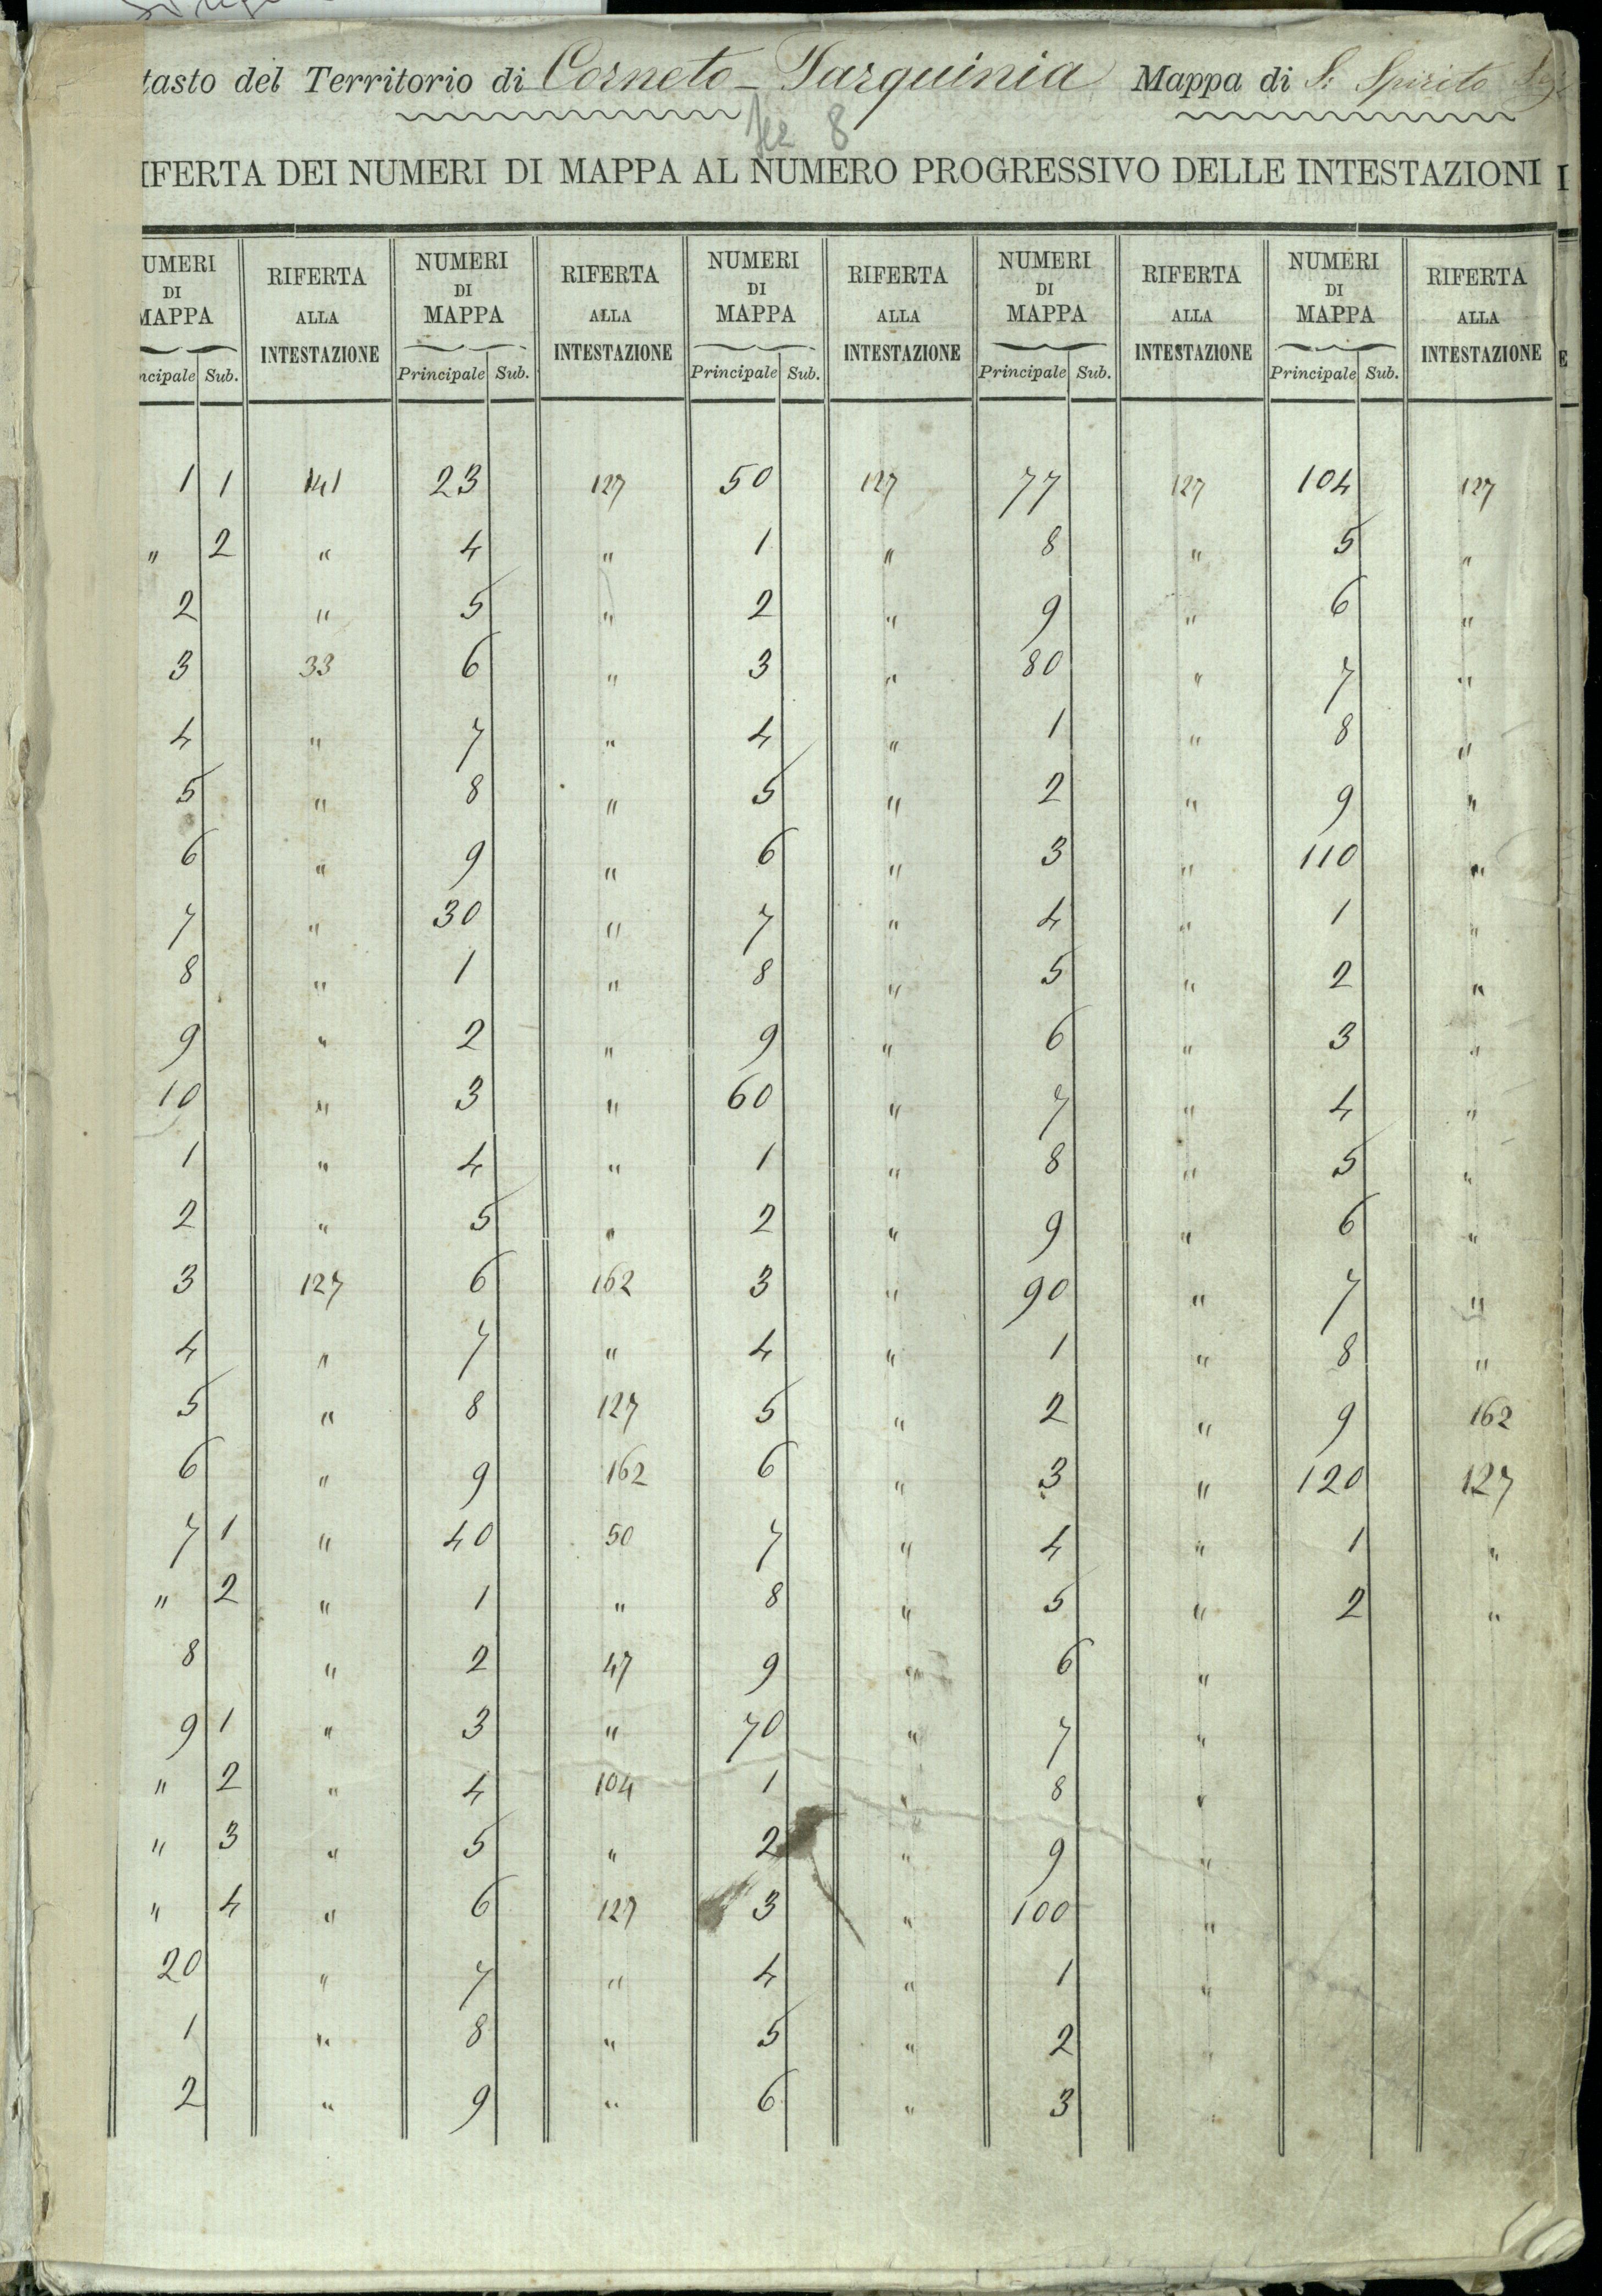 tasto del Territorio di Corneto – Tarquinia Mappa di S. Spirito
8
IFERTA DEI NUMERI DI MAPPA AL NUMERO PROGRESSIVO DELLE INTESTAZIONI I
UMERI DI MAPPA RIFERTA ALLA INTESTAZIONE NUMERI DI MAPPA RIFERTA ALLA INTESTAZIONE NUMERI DI MAPPA RIFERTA ALLA INTESTAZIONE NUMERI DI MAPPA RIFERTA ALLA INTESTAZIONE NUMERI DI MAPPA RIFERTA ALLA INTESTAZIONE E
ncipale Sub. Principale Sub. Principale Sub. Principale Sub. Principale Sub.
1 1 141 23 127 50 127 77 127 104 127
" 2 " 4 " 1 " 8 " 5 "
2 " 5 " 2 " 9 " 6 "
3 33 6 " 3 " 80 " 7 "
4 " 7 " 4 " 1 " 8 "
5 " 8 " 5 " 2 " 9 "
6 " 9 " 6 " 3 " 110 "
7 " 30 " 7 " 4 " 1 "
8 " 1 " 8 " 5 " 2 "
9 " 2 " 9 " 6 " 3 "
10 " 3 " 60 " 7 " 4 "
1 " 4 " 1 " 8 " 5 "
2 " 5 " 2 " 9 " 6 "
3 127 6 162 3 " 90 " 7 "
4 " 7 " 4 " 1 " 8 "
5 " 8 127 5 " 2 " 9 162
6 " 9 162 6 " 3 " 120 127
7 1 " 40 50 7 " 4 " 1 "
" 2 " 1 " 8 " 5 " 2 "
8 " 2 47 9 " 6 "
9 1 " 3 " 70 " 7 "
" 2 " 4 104 1 " 8 "
" 3 " 5 " 2 " 9 "
" 4 " 6 127 3 " 100 "
20 " 7 " 4 " 1 "
1 " 8 " 5 " 2 "
2 " 9 " 6 " 3 "